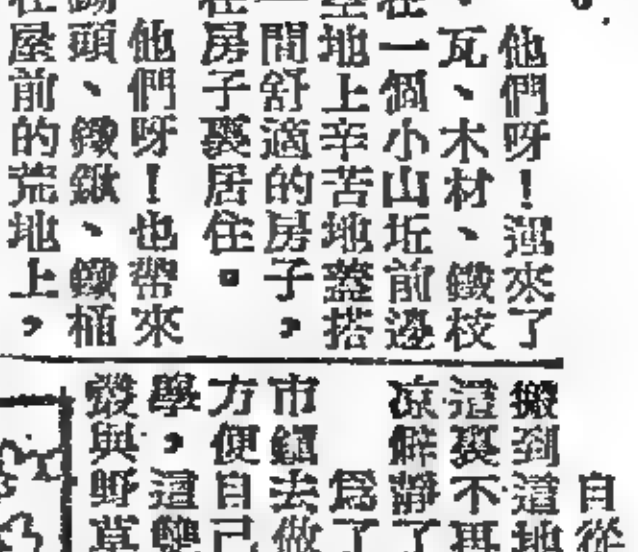 他們呀！運來了
瓦、木材、鐵枝
在一個小山坵前邊
空地上辛苦地蓋搭
一間舒適的房子，
在房子裏居住。
他們呀！也帶來
鋤頭、鐵鍬、鐵桶
在屋前的荒地上，
自從
搬到這地
這裏不再
凉僻靜了
為了
市鎮去做
方便自己
學，這
毀與野草